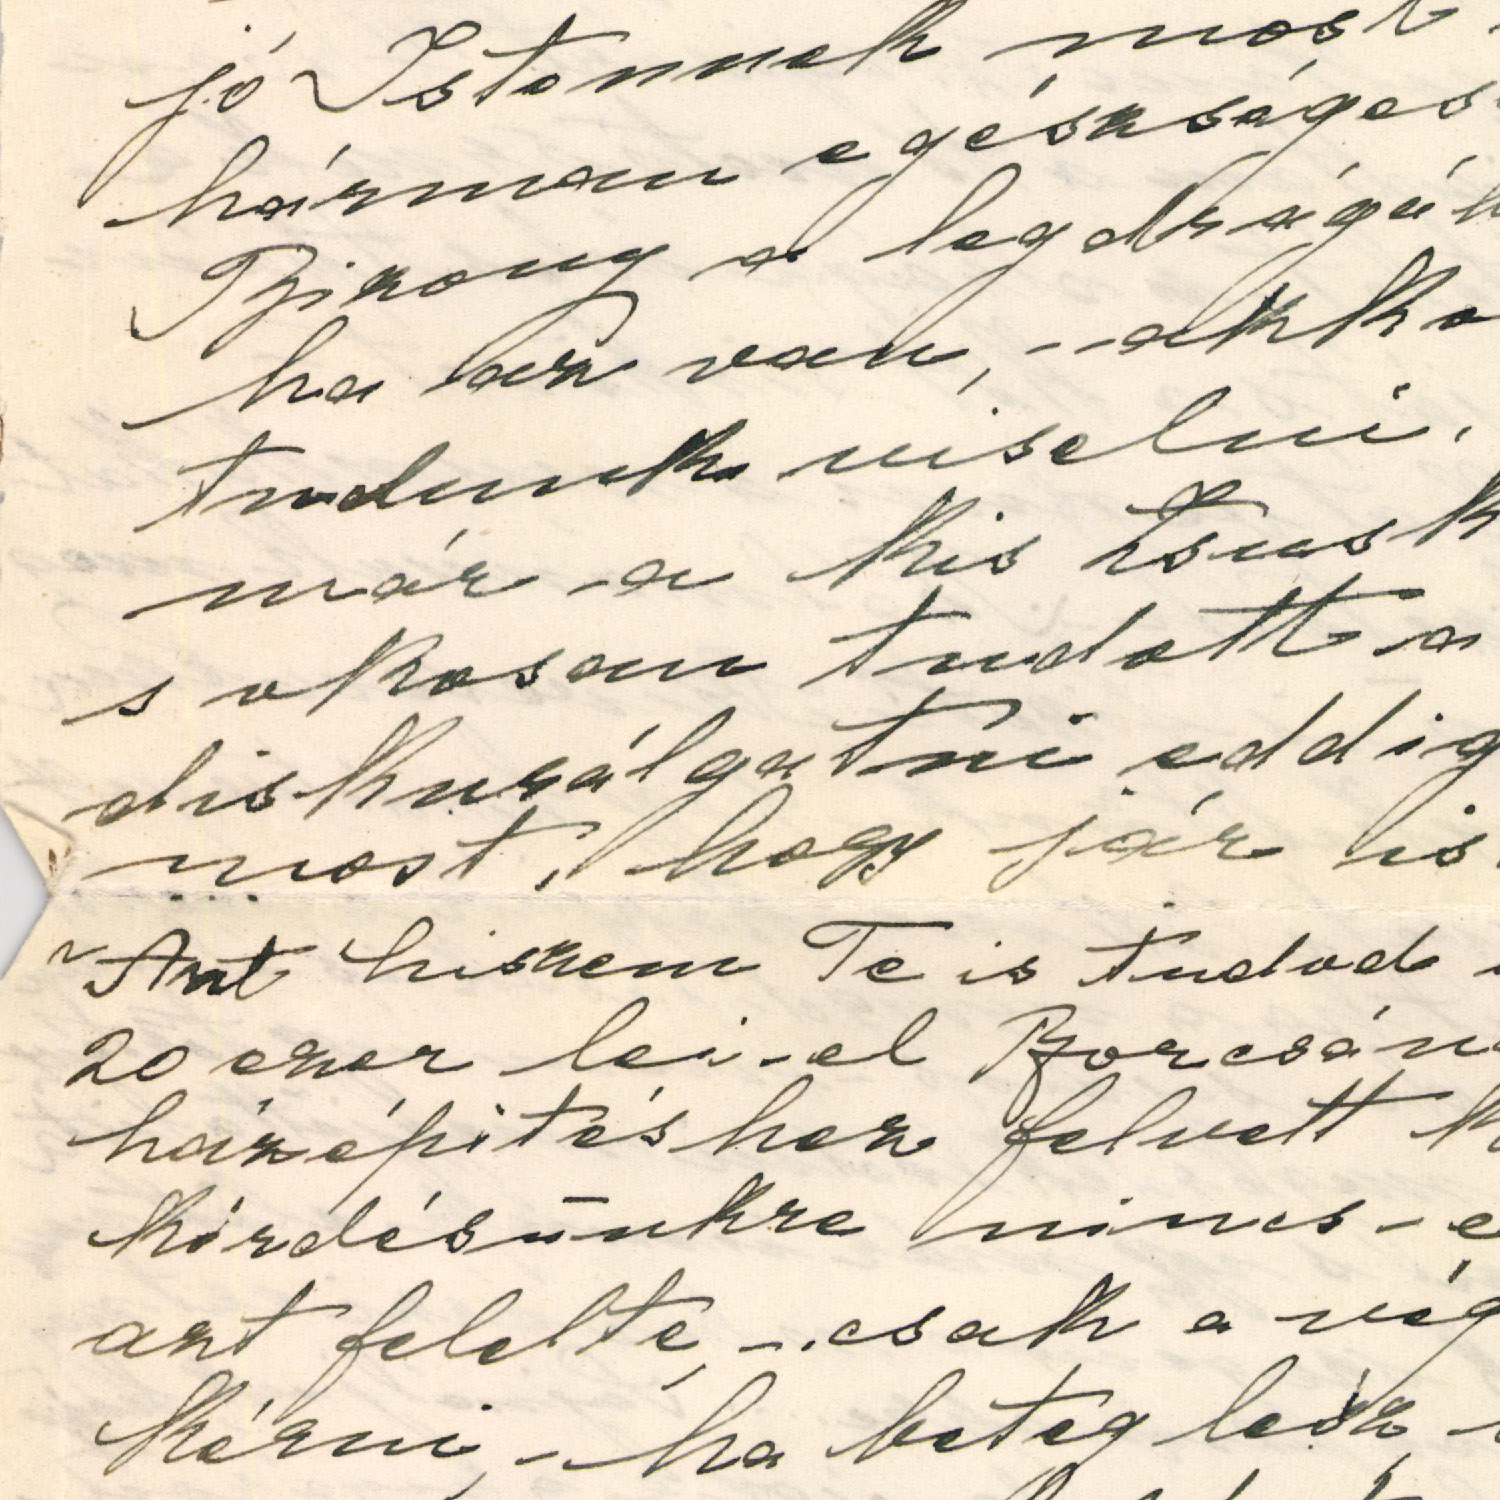 jó Istennek most
hárman egészséges
Bizony a legdrágá
ha az van, - akko
tudunk viselni.
már a kis Csusk
s okosan tudott a
diskurálgatni eddig
most, hogy jár is.
Azt hiszem Te is tudod
20 ezer lei-el Borcsán
házépitéshez felvett k
kérdésünkre nincs - e
azt felelte, - csak a vég
kérni, - ha beteg lesz,